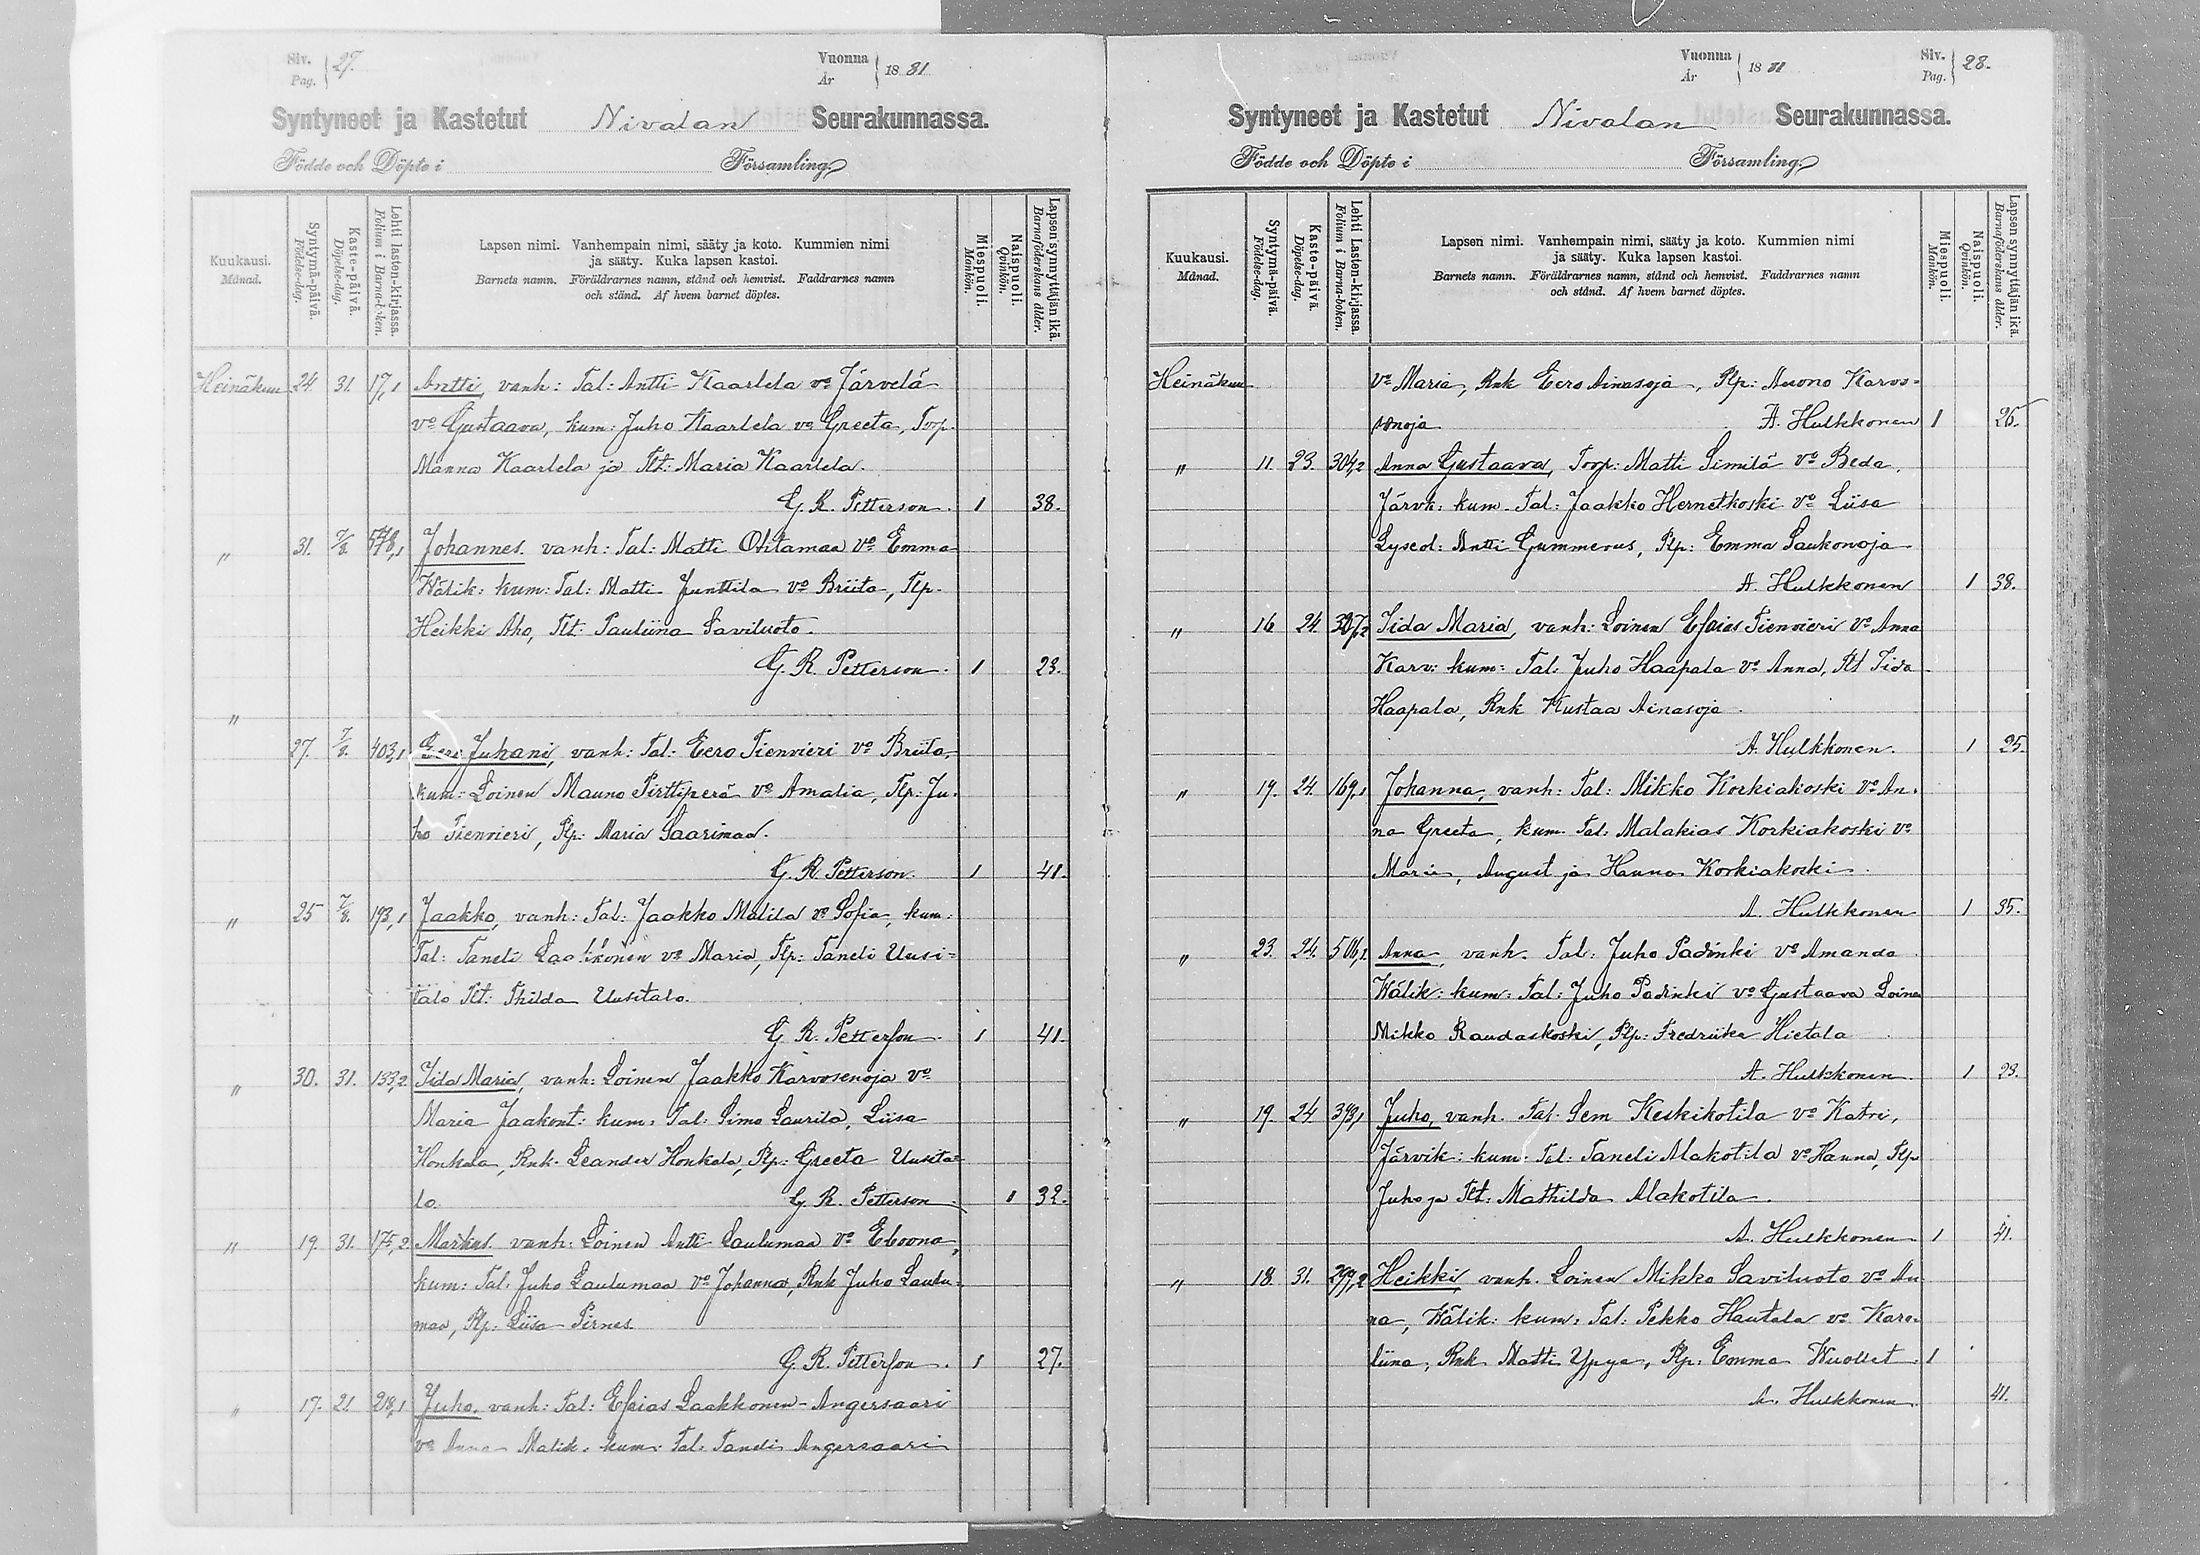 Siv. Pag. 27.
Vuonna År 1881
Syntyneet ja Kastetut Nivalan Seurakunnassa.
Födde och Döpte i Församling.
Kuukausi. Månad.
Syntymä-päivä. Födelse-dag.
Kaste-päivä. Döpelse-dag.
Lehti lasten-kirjassa. Folium i Barna-boken.
Lapsen nimi. Vanhempain nimi, sääty ja koto. Kummien nimi
ja sääty. Kuka lapsen kastoi.
Barnets namn. Föräldrarnes namn, stånd och hemvist. Faddrarnes namn
och stånd. Af hvem barnet döptes.
Miespuoli. Mankön.
Naispuoli. Qvinkön.
Lapsensynnyttäjän ikä. Barnaföderskans ålder.
Heinäkuu 24 31. 17,1 Antti, vanh: Tal: Antti Kaarlela vo Järvelä
vo Gustaava, kum: Juho Kaarlela vo Greeta, Torp.
Manna Kaarlela ja Tlt: Maria Kaarlela.
G. R. Petterson. 1 38.
" 31. 7/8. 548,1 Johannes. vanh: Tal: Matti Ohtamaa vo Emma
Wälik: kum: Tal: Matti Junttila vo Briita, Plp.
Heikki Aho, Tlt: Pauliina Saviluoto.
G. R. Petterson. 1 23.
"
27. 7/8. 403,1 Eero Juhani, vanh: Tal: Eero Tienvieri vo Briita,
kum: Loinen Mauno Pirttiperä vo Amalia, Plp: Ju-
ho Tienvieri, Plp: Maria Saarimaa.
G. R. Petterson. 1 41.
" 25 7/8. 193,1 Jaakko, vanh: Tal: Jaakko Malila vo Sofia, kum:
Tal: Taneli vo Maria, Plp: Taneli Uusi=
talo Tlt: Thilda Uusitalo.
G. R. Petterson. 1 41.
" 30. 31. 133,2 Iida Maria, vanh: Loinen Jaakko Karvosenoja vo
Maria Jaakont: kum: Tal: Simo Laurila, Liisa
Honkala, Rnk. Leander Honkala, Plp: Greeta Uusita=
lo. G. R. Petterson 1 32.
" 19. 31. 175,2 Markus. vanh: Loinen Antti Laulumaa vo Eboona,
kum: Tal. Juho Laulumaa vo Johanna, Rnk Juho Laulu-
maa, Plp: Liisa Pirnes.
G. R. Petterson. 1 27.
" 17. 21. 218,1 Juho, vanh: Tal: Esaias Laakkonen-Angersaari
vo Anna Malik. kum: Tal: Taneli Angersaari
Vuonna År 1881
Siv. Pag. 28.
Syntyneet ja Kastetut Nivalan Seurakunnassa.
Födde och Döpte i Församling.
Kuukausi. Månad.
Syntymä-päivä. Födelse-dag.
Kaste-päivä. Döpelse-dag.
Lehti Lasten-kirjassa. Folium i Barna-boken.
Lapsen nimi. Vanhempain nimi, sääty ja koto. Kummien nimi
ja sääty. Kuka lapsen kastoi.
Barnets namn. Föräldrarnes namn, stånd och hemvist. Faddrarnes namn
och stånd. Af hvem barnet döptes.
Miespuoli. Mankön.
Naispuoli. Qvinkön.
Lapsensynnyttäjän ikä. Barnaföderskans ålder.
Heinäkuu vo Maria, Rnk Eero Ainasoja, Plp: Karvo=
senoja A. Hulkkonen 1 26.
" 11. 23. 304,2 Anna Gustaava, Torp: Matti Similä vo Beda,
Järvk: kum. Tal: Jaakko Hernetkoski vo Liisa
Lyseol: Antti Gummerus, Plp: Emma Saukonoja
A. Hulkkonen 1 38.
" 16 24. 307,2 Iida Maria, vanh: Loinen Esaias Tienvieri vo Anna
Karv: kum: Tal: Juho Haapala vo Anna, Tlt Iida
Haapala, Rnk Kustaa Ainasoja.
A. Hulkkonen. 1 25
" 19. 24. 169,1 Johanna, vanh: Tal: Mikko Korkiakoski vo An-
na Greeta, kum. Tal: Malakias Korkiakoski vo
Maria, August ja Hanna Korkiakoski.
A. Hulkkonen 1 35.
" 23. 24. 506,1 Anna, vanh. Tal: Juho Padinki vo Amanda
Wälik: kum: Tal: Juho Padinki vo Gustaava Loinen
Mikko Raudaskoski, Plp: Fredriika Hietala
A. Hulkkonen. 1 23.
" 19. 24 393,1 Juho, vanh. Tal: Sem Keskikotila vo Katri,
Järvik: kum: Tal: Taneli Alakotila vo Hanna, Plp
Juho ja Tlt: Mathilda Alakotila.
A. Hulkkonen 1 41.
" 18. 31. 299,2 Heikki, vanh. Loinen Mikko Saviluoto vo An
na, Wälik: kum: Tal: Pekko Hautala vo Karo-
liina, Rnk Matti Ypya, Plp: Emma Wuollet. 1
A. Hulkkonen. 41.